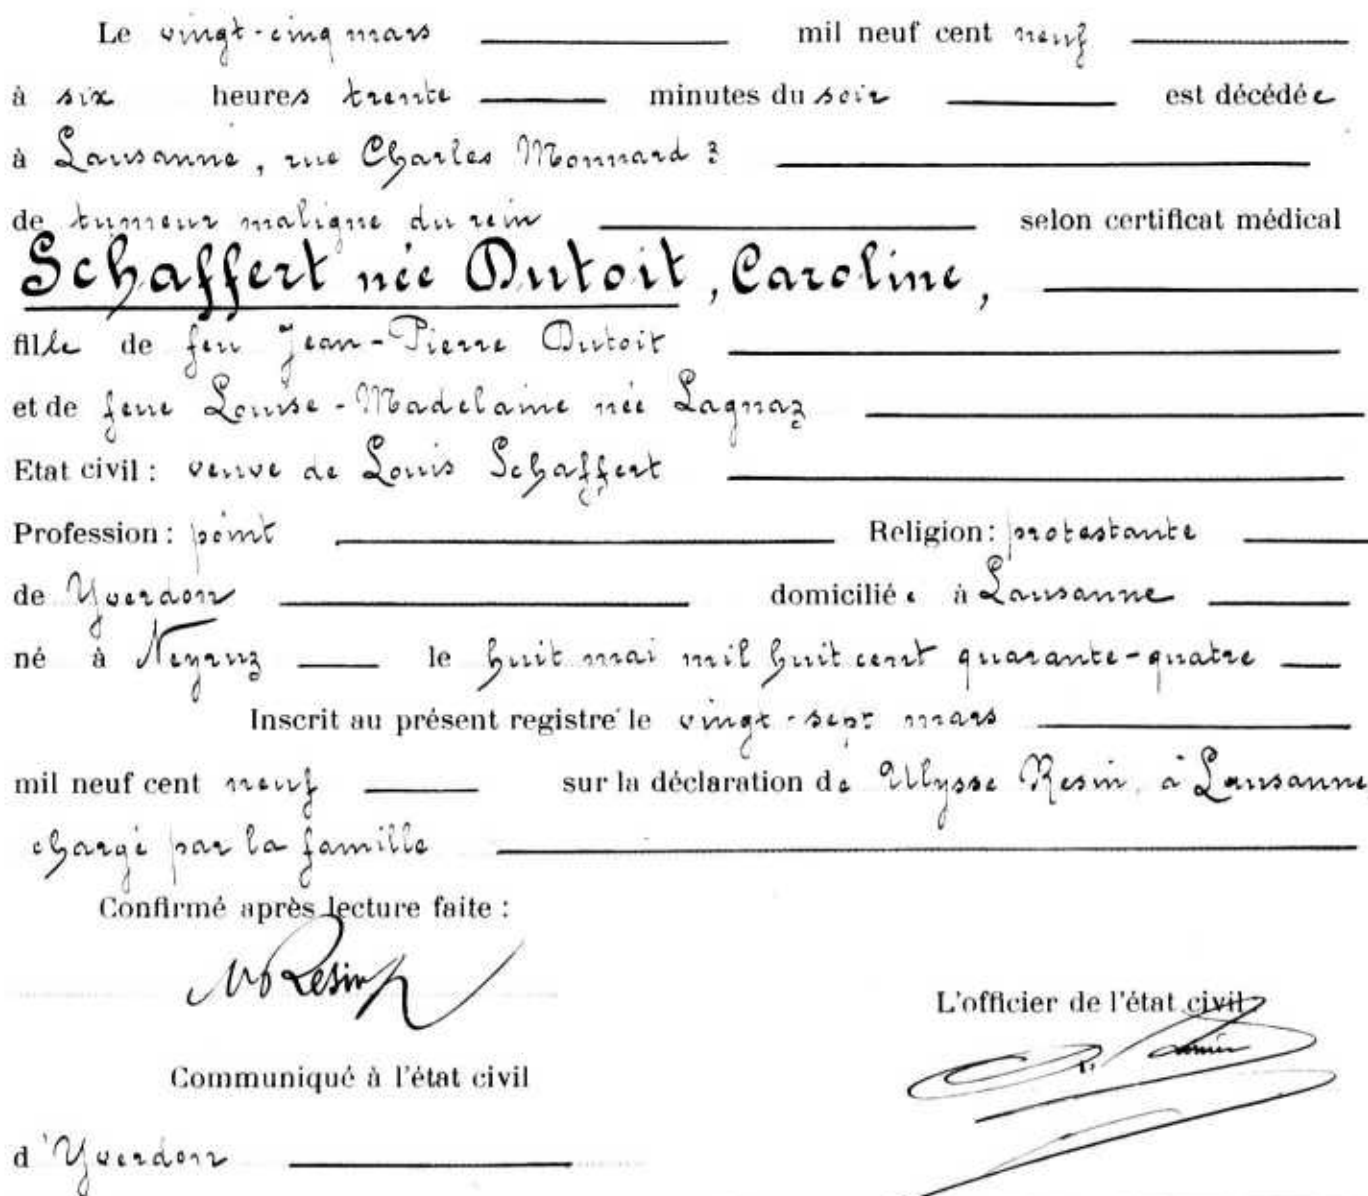 Le vingt-cinq mars mil neuf cent neuf
à six heures trente minutes du soir est décédée
à Lausanne, rue Charles Monnard 3
de tumeur maligne du rein selon certificat médical
Schaffert née Dutoit, Caroline,
fille de feu Jean-Pierre Dutoit
et de feue Louise-Madelaine née Lagnaz
Etat civil : veuve de Louis Schaffert
Profession : point Religion : protestante
de Yverdon domiciliée à Lausanne
né à Neyruz le huit mai mil huit cent quarante-quatre
Inscrit au présent registre le vingt-sept mars
mil neuf cent neuf sur la déclaration de Ulysse Resin, à Lausanne
chargé par la famille
Confirmé après lecture faite :
Resin
L'officier de l'état civil
Communiqué à l'état civil
d'Yverdon